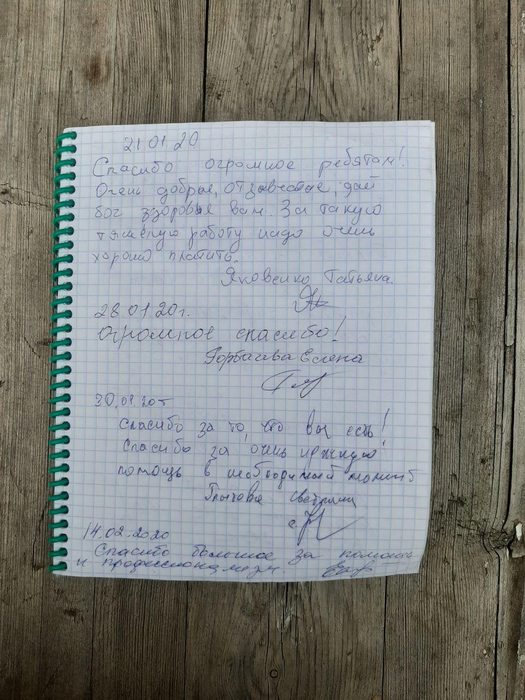 21.01.20
Спасибо огромное ребятам!
Очень добрые, отзывчевые, дай
бог здоровья вам. За такую
тяжелую работу надо очень
хорошо платить.
Яковенко Татьяна.
28.01.20г.
Огромное спасибо!
Горбасва Елена
30.01.20г
Спасибо за то, что вы есть!
Спасибо за очень нужную
помощь в необходимый момент
Светлана
14.02.2020
Спасибо большое за помощь
и профессионализм